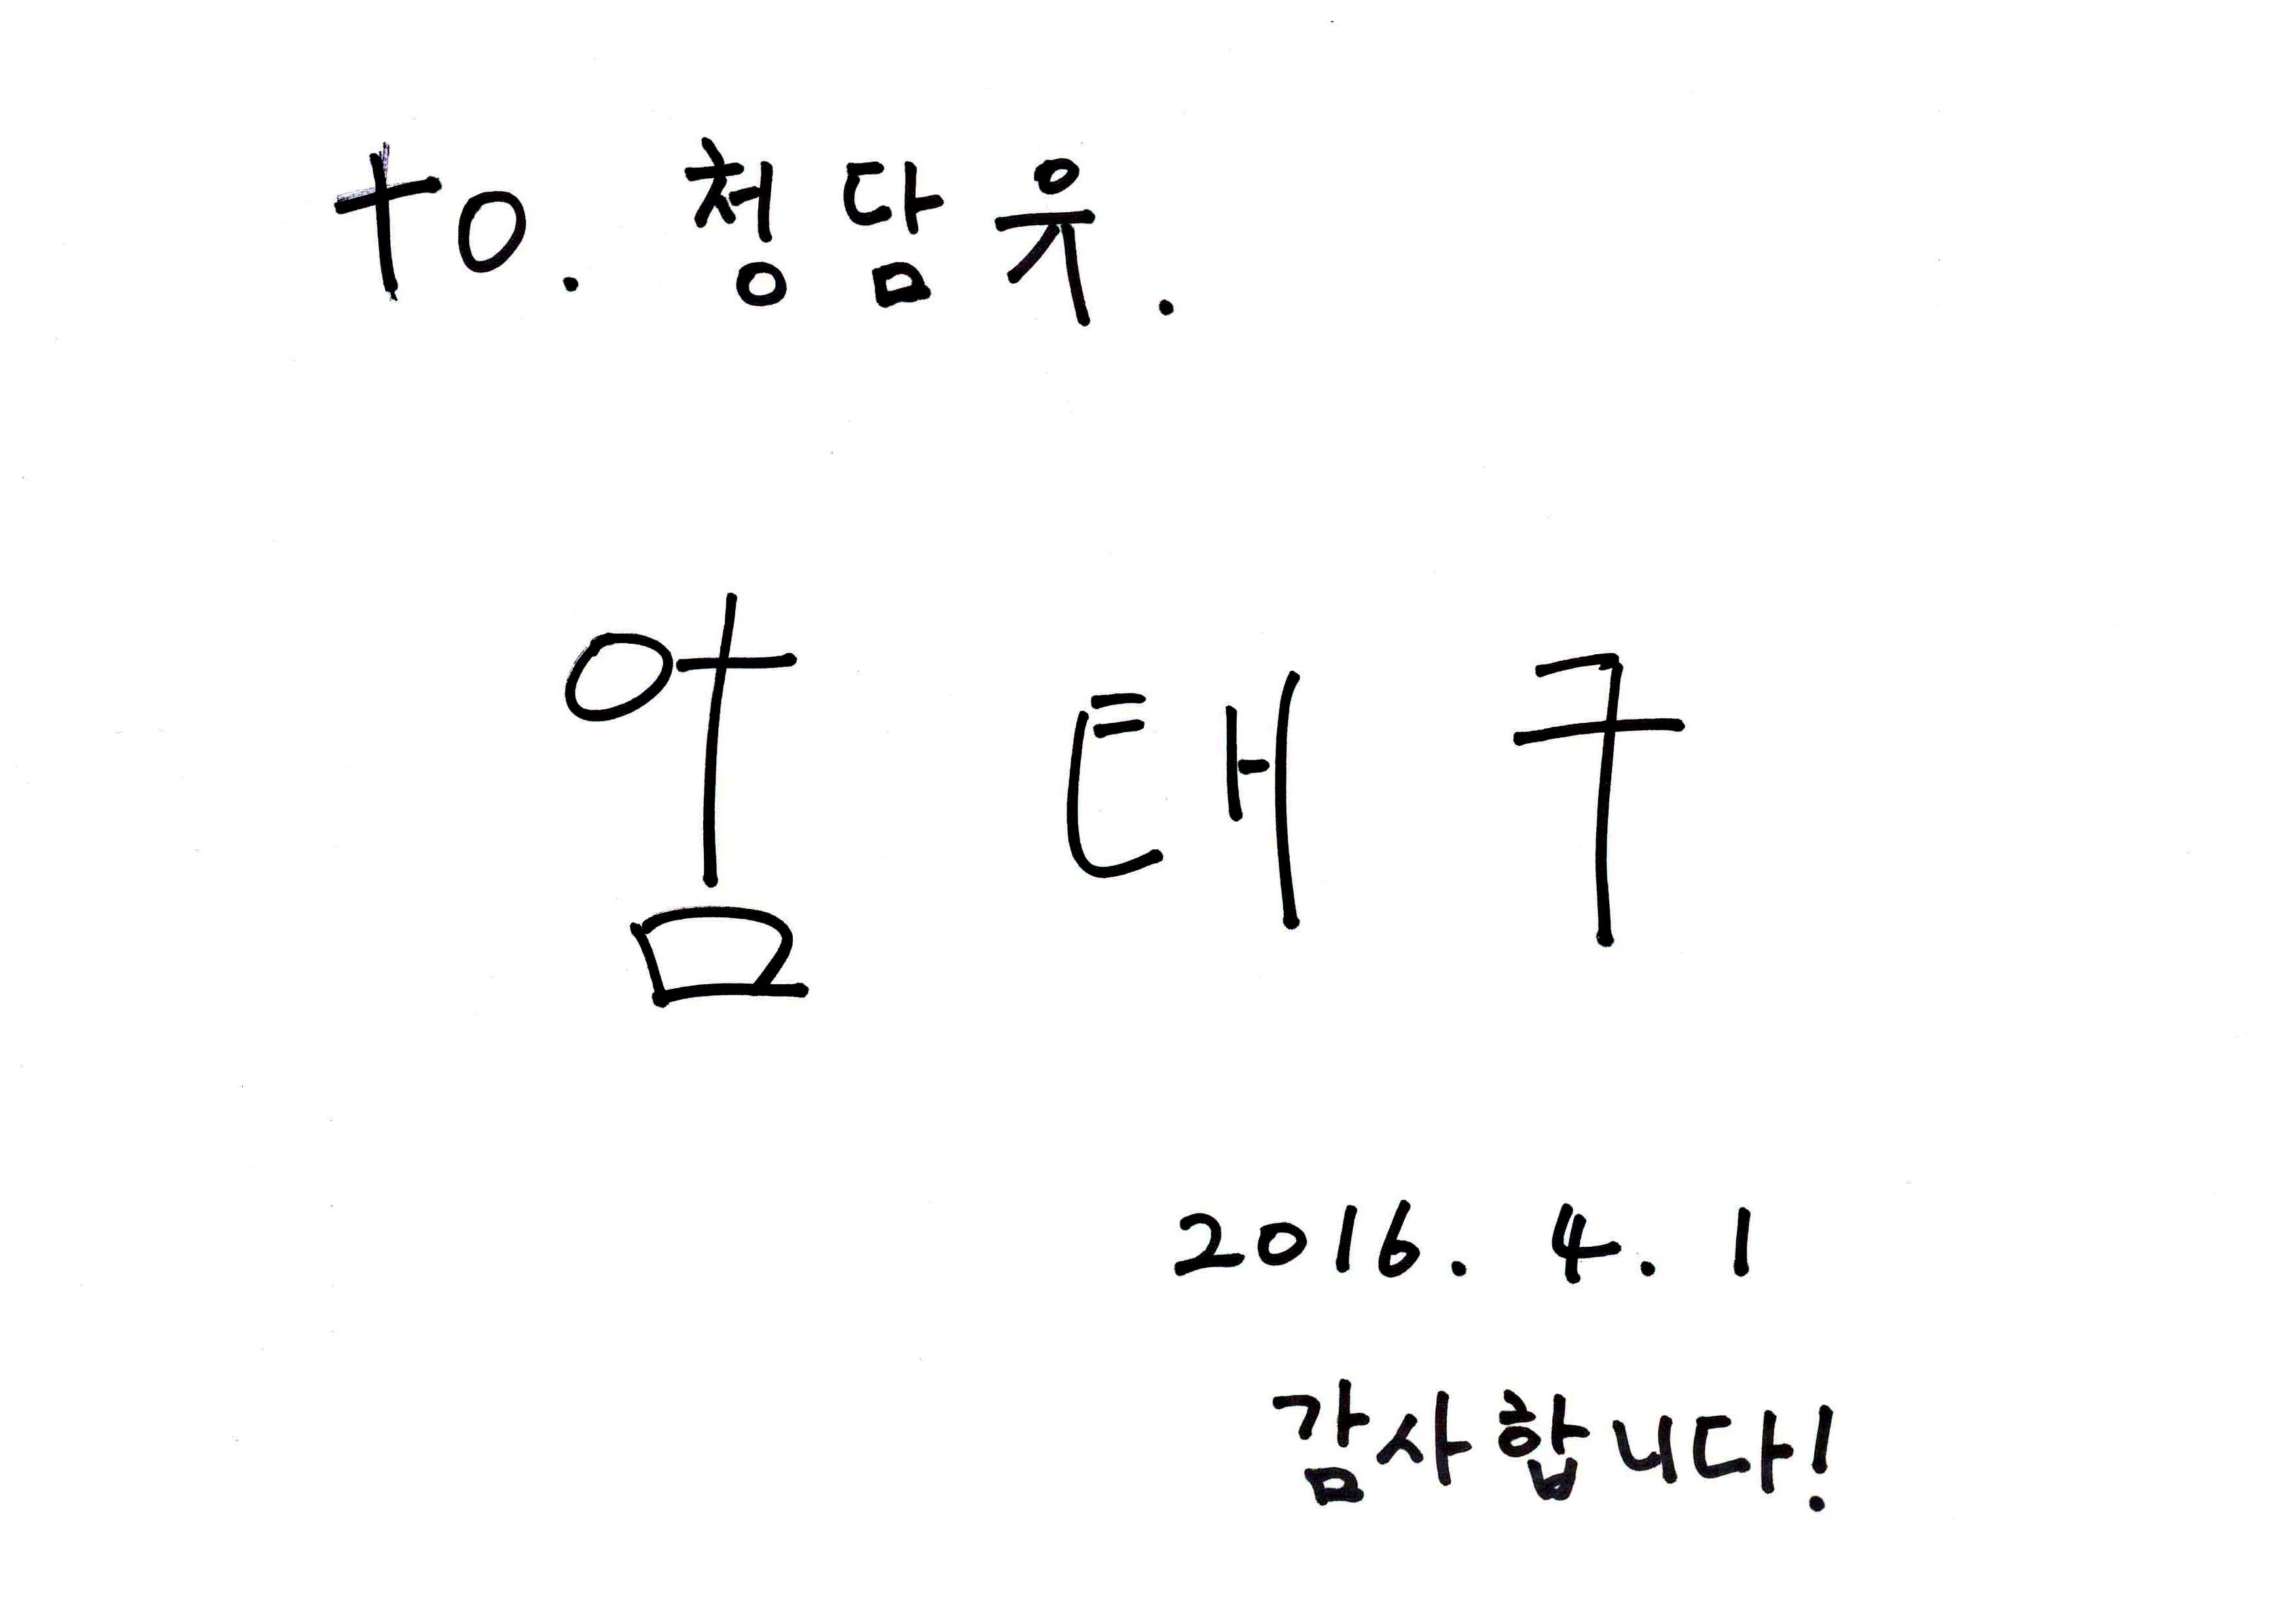 to. 청담유.
엄태구
2016. 4. 1
감사합니다!